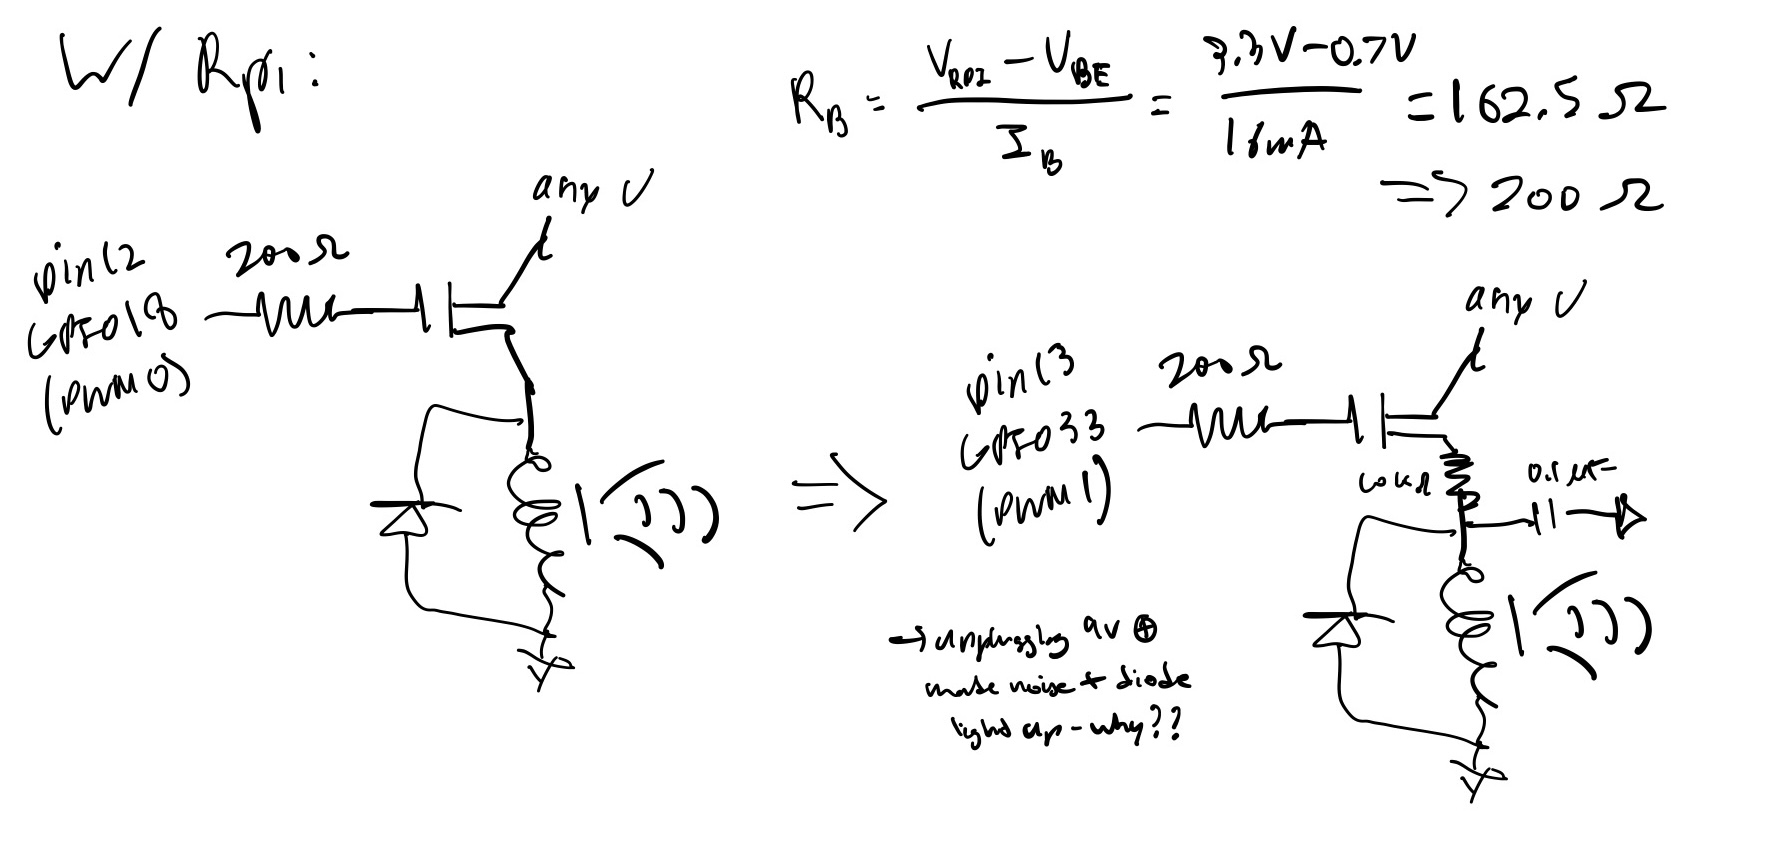 W/ Rpi:
R_B = (V_RPI - V_BE) / I_B = (3.3V - 0.7V) / 16mA = 162.5 Ω
=> 200 Ω
any V
pin 12
GPIO 18
(PWM 0)
200Ω
=>
any V
pin 13
GPIO 33
(PWM 1)
200Ω
0.1µF
→ unplugging 9V ⊕
made noise + diode
light up - why??